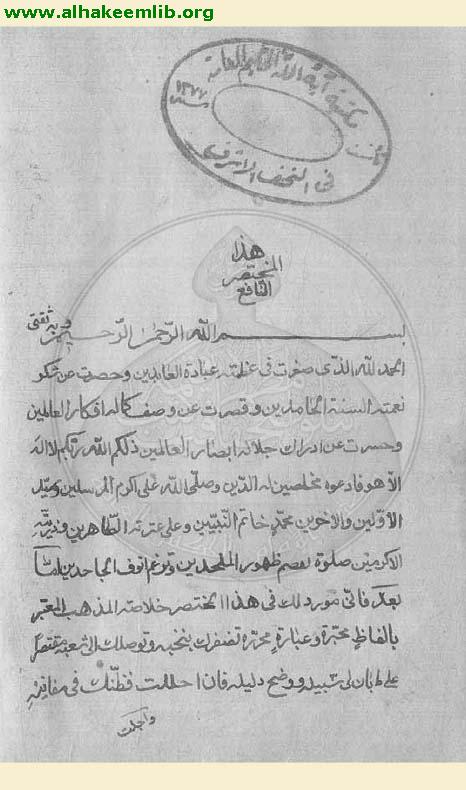 www.alhakeemlib.org
مكتبة آية الله الحكيم العامة
في النجف الاشرف
هذا
المختصر
النافع
بسم الله الرحمن الرحيم وبه ثقتي
الحمد لله الذي صغرت في عظمته عبادة العابدين وحصرت عن شكر
نعمته السنة الحامدين وقصرت عن وصف كماله افكار العالمين
وحسرت عن ادراك جلاله ابصار العالمين ذلكم الله ربكم لا اله
الا هو فادعوه مخلصين له الدين وصلى الله على اكرم المرسلين وسيد
الاولين والاخرين محمد خاتم النبيين وعلى عترته الطاهرين وذريته
الاكرمين صلوة تقصم ظهور الملحدين وترغم انوف الجاحدين اما
بعد فاني مورد لك في هذا المختصر خلاصة المذهب المعتبر
بالفاظ محبرة وعبارة محررة تظفرك بنخبه وتوصلك الى شعبه مقتصرا
على ما بان لي سبيله ووضح دليله فان احللت فطنتك في مغانيه
واجلت